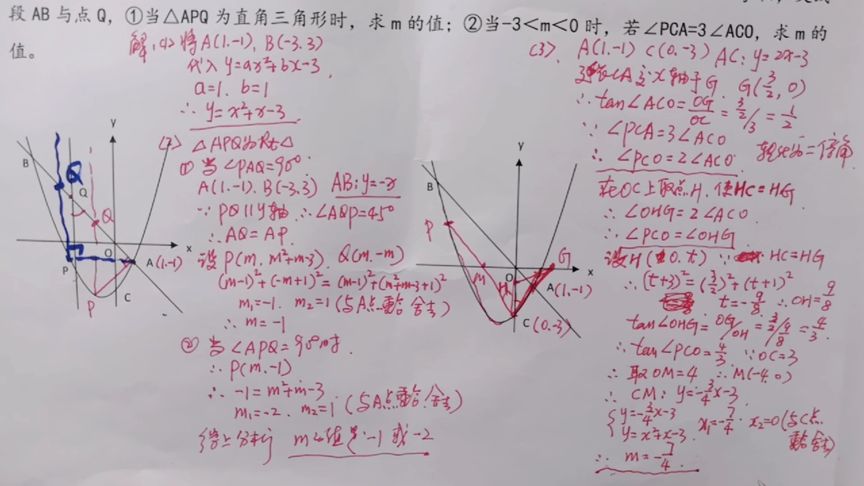 段 AB 与点 Q, ①当△APQ 为直角三角形时, 求 m 的值; ②当-3＜m＜0 时, 若∠PCA=3∠ACO, 求 m 的
值。
解: (1) 将A(1.-1), B(-3.3)
代入 y=ax²+bx-3
a=1. b=1
∴ y=x²+x-3
△APQ为Rt△
① 当∠PAQ=90°
A(1.-1). B(-3.3) AB: y=-x
∵ PQ∥y轴 ∴∠AQP=45°
∴ AQ=AP
设 P(m, m²+m-3). Q(m.-m)
(m-1)²+(-m+1)²=(m-1)²+(m²+m-3+1)²
m₁=-1. m₂=1(与A点重合 舍去)
∴ m=-1
② 当∠APQ=90°时.
∴ P(m.-1)
∴ -1=m²+m-3
m₁=-2. m₂=1(与A点重合 舍去)
综上分析 m的值是-1或-2
y
B
Q
Q
x
P
O
A(1.-1)
P
C
y
B
P
G
M
O
H
x
A(1.-1)
C(0.-3)
(3). A(1.-1) C(0.-3) AC: y=2x-3
交x轴于G. G(3/2, 0)
∴ tan∠ACO=OG/OC=3/2/3=1/2
∵ ∠PCA=3∠ACO
∴ ∠PCO=2∠ACO 二倍角
在OC上取点H. 使HC=HG
∴ ∠OHG=2∠ACO
∴ ∠PCO=∠OHG
设H(0.t) ∵ HC=HG
∴ (t+3)²=(3/2)²+(t)²
t=-9/8 ∴ OH=9/8
tan∠OHG=OG/OH=3/2/9/8=4/3
∴ tan∠PCO=4/3 ∵OC=3
∴ 取OM=4 ∴M(-4.0)
∴ CM: y=-3/4x-3
y=-3/4x-3 x₁=-7/4. x₂=0(与C点
y=x²+x-3 重合 舍去)
∴ m=-7/4.